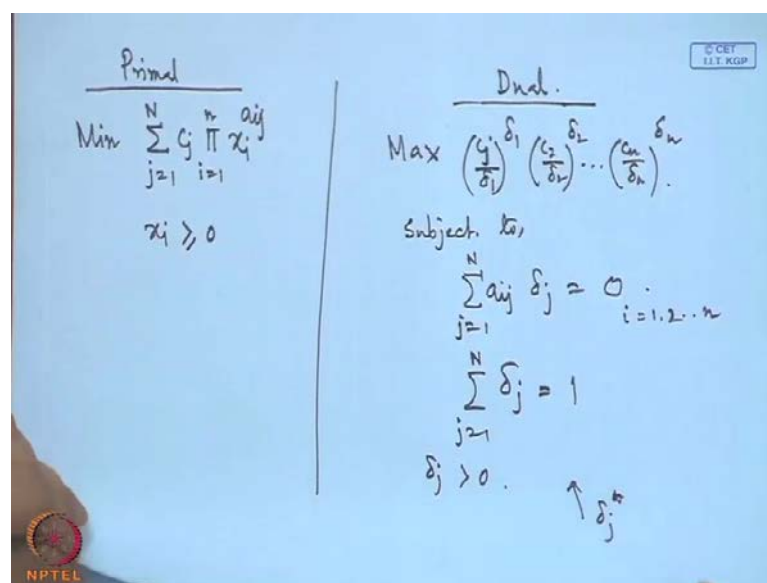 © CET
I.I.T. KGP
Primal
Min \sum_{j=1}^{N} c_j \prod_{i=1}^{n} x_i^{a_{ij}}
x_i ≥ 0
Dual.
Max (c_j/δ_1)^{δ_1} (c_2/δ_2)^{δ_2} ... (c_n/δ_n)^{δ_n}.
Subject to,
\sum_{j=1}^{N} a_{ij} δ_j = 0. i=1,2..n
\sum_{j=1}^{N} δ_j = 1
δ_j > 0. ↑ δ_j^*
NPTEL